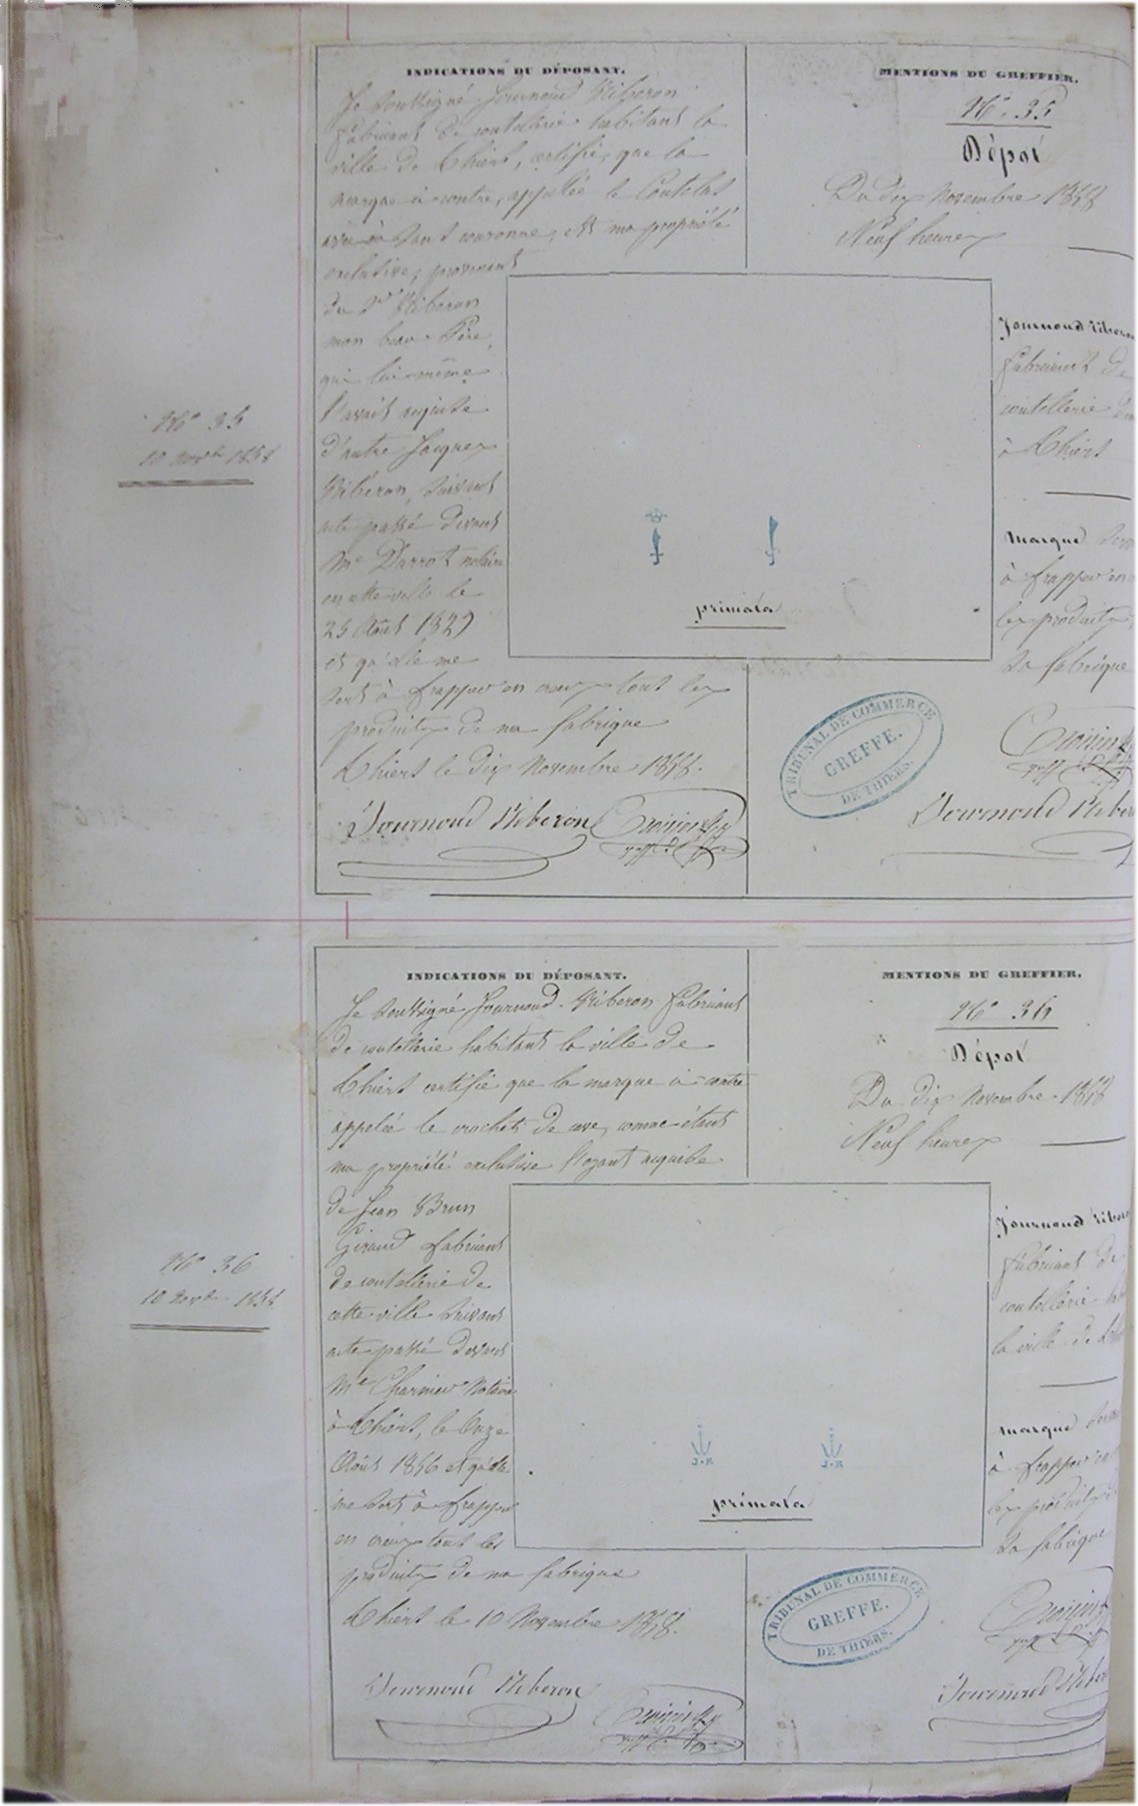 INDICATIONS DU DÉPOSANT.
Je soussigné Journoud Riberon
fabricant de coutellerie habitant la
ville de Thiers, certifie, que la
marque ci-contre, appellée le Coutelas
avec ou sans couronne, est ma propriété
exclusive, provenant
du Sr Riberon
mon beau-Père,
qui lui-même
l'avait acquise
d'autre Jacques
Riberon, suivant
acte passé devant
Me Darrot notaire
en cette ville le
25 Août 1829
et qu'elle me
sert à frapper en creux tout les
produits de ma fabrique
Thiers le dix Novembre 1858.
Journoud Riberon
MENTIONS DU GREFFIER.
No 35
Dépot
Du dix Novembre 1858
Neuf heures
Journoud Riberon
fabricant de
coutellerie
à Thiers
marque
à frapper en
les produits
sa fabrique
primata
TRIBUNAL DE COMMERCE
GREFFE.
DE THIERS.
Journoud Riber
No 35
10 novbre 1858
INDICATIONS DU DÉPOSANT.
Je soussigné Journoud-Riberon fabricant
de coutellerie habitant la ville de
Thiers certifie que la marque ci-contre
appelée le crochets de cave, comme étant
ma propriété exclusive l'ayant acquise
de Jean Brun
Giraud fabricant
de coutellerie de
cette ville suivant
acte passé devant
Me Charnier Notaire
à Thiers, le Onze
Août 1856 et qu'elle
me sert à frapper
en creux tout les
produits de ma fabrique
Thiers le 10 Novembre 1858.
Journoud Riberon
MENTIONS DU GREFFIER.
No 36
Dépot
Du dix Novembre 1858
Neuf heures
Journoud Riberon
fabricant de
coutellerie
la ville de
marque
à frapper en
les produits
sa fabrique
J-R
J-R
primata
TRIBUNAL DE COMMERCE
GREFFE.
DE THIERS.
Journoud Riber
No 36
10 Novbre 1858